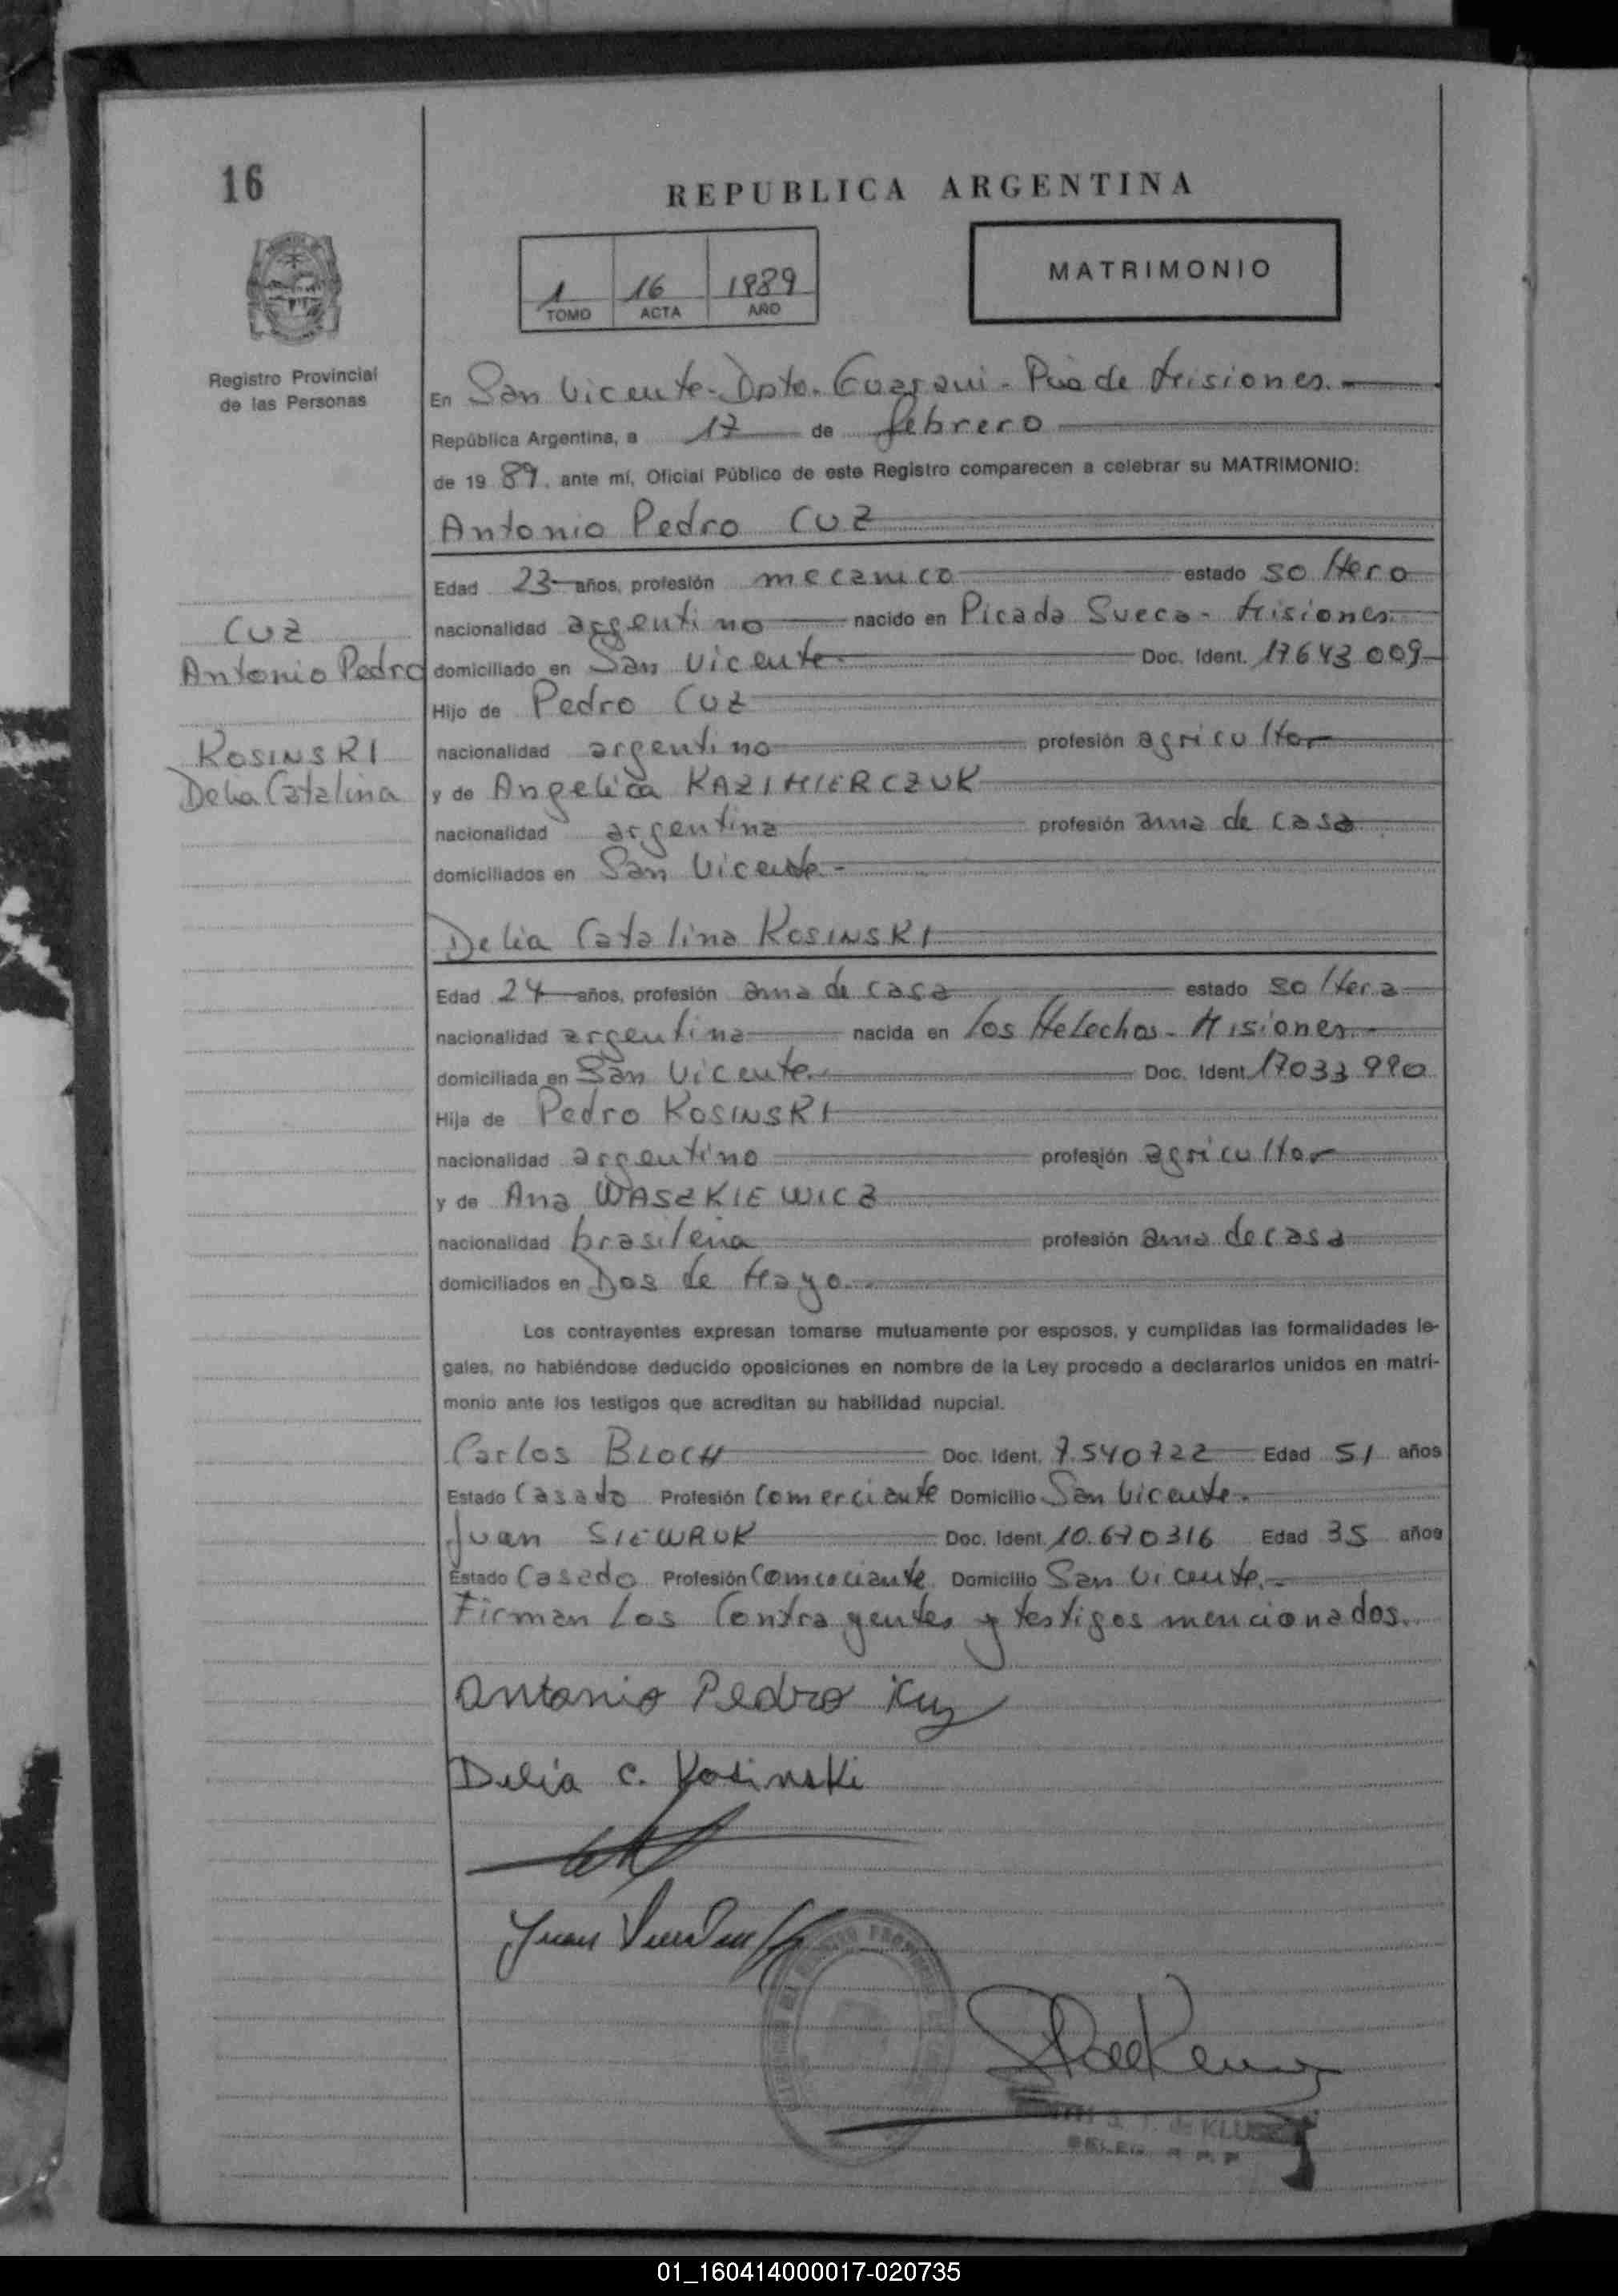 16
REPUBLICA ARGENTINA
1 16 1989
TOMO ACTA AÑO
MATRIMONIO
Registro Provincial
de las Personas
En San Vicente - Dpto. Guarani - Pcia de Misiones.
República Argentina, a 17 de febrero
de 19 89, ante mí, Oficial Público de este Registro comparecen a celebrar su MATRIMONIO:
Antonio Pedro CUZ
Edad 23 años, profesión mecanico estado soltero
CUZ
nacionalidad argentino nacido en Picada Sueca - Misiones.
Antonio Pedro
domiciliado en San Vicente. Doc. Ident. 17643009
Hijo de Pedro CUZ
KOSINSKI
nacionalidad argentino profesión agricultor
Delia Catalina
y de Angelica KAZIMIERCZUK
nacionalidad argentina profesión ama de casa
domiciliados en San Vicente -
Delia Catalina KOSINSKI
Edad 24 años, profesión ama de casa estado soltera
nacionalidad argentina nacida en Los Helechos - Misiones. -
domiciliada en San Vicente. Doc. Ident. 17033990
Hija de Pedro KOSINSKI
nacionalidad argentino profesión agricultor
y de Ana WASZKIEWICZ
nacionalidad brasileña profesión ama de casa
domiciliados en Dos de Mayo.
Los contrayentes expresan tomarse mutuamente por esposos, y cumplidas las formalidades le-
gales, no habiéndose deducido oposiciones en nombre de la Ley procedo a declararlos unidos en matri-
monio ante los testigos que acreditan su habilidad nupcial.
Carlos BLOCH Doc. Ident. 7.540722 Edad 51 años
Estado Casado Profesión Comerciante Domicilio San Vicente.
Juan SIEWRUK Doc. Ident. 10.670316 Edad 35 años
Estado Casado Profesión Comerciante Domicilio San Vicente. -
Firman los Contrayentes y testigos mencionados.
Antonio Pedro Kuz
Delia C. Kosinski
Juan
de KLU
DELEG. R. P. P
01_160414000017-020735